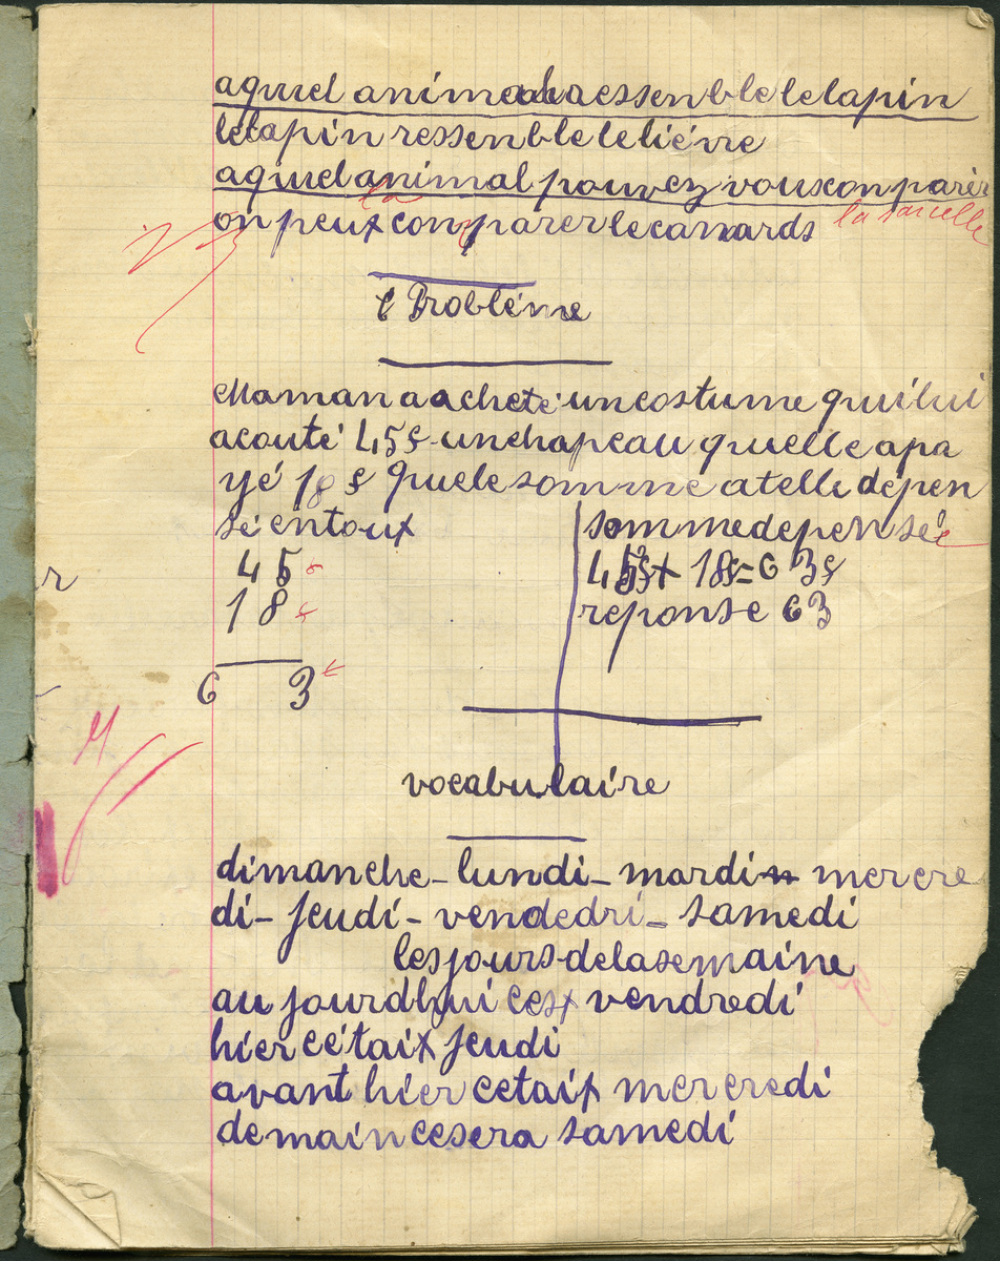 aquel animal raessenble lelapin
lelapin ressenble leliévre
aquel animal pouvez vousconparér
la
onpeux conparer lecanards la sarcelle
Probléme
Maman a acheté un costume quilui
acouté 45f un chapeau quelle apa
yé 18f Quele somme atelle dépen
sé entoux
somme depensée
45f
45f+ 18f=63f
18f
reponse 63
63f
vocabulaire
dimanche - lundi - mardi mercre
di - jeudi - vendedri - samedi
lesjours delasemaine
aujourdhui cest vendredi
hier cétait jeudi
avant hier cetait mercredi
demain cesera samedi